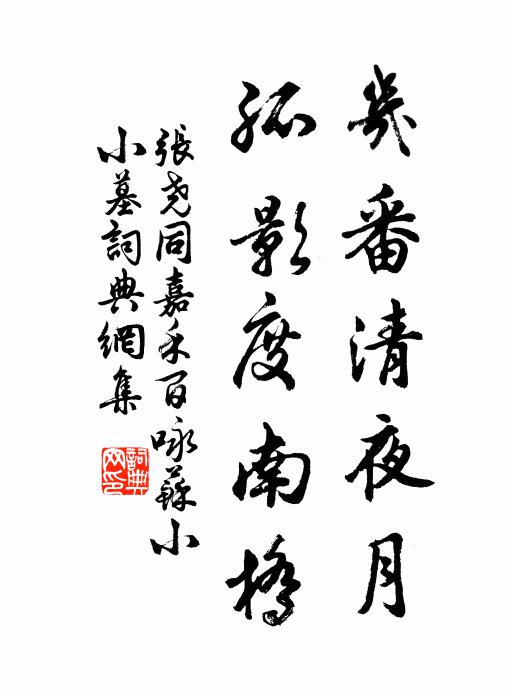 幾番清夜月
孤影度南橋
張堯同嘉禾百咏蘇小
小墓詞典網集
詞典网印